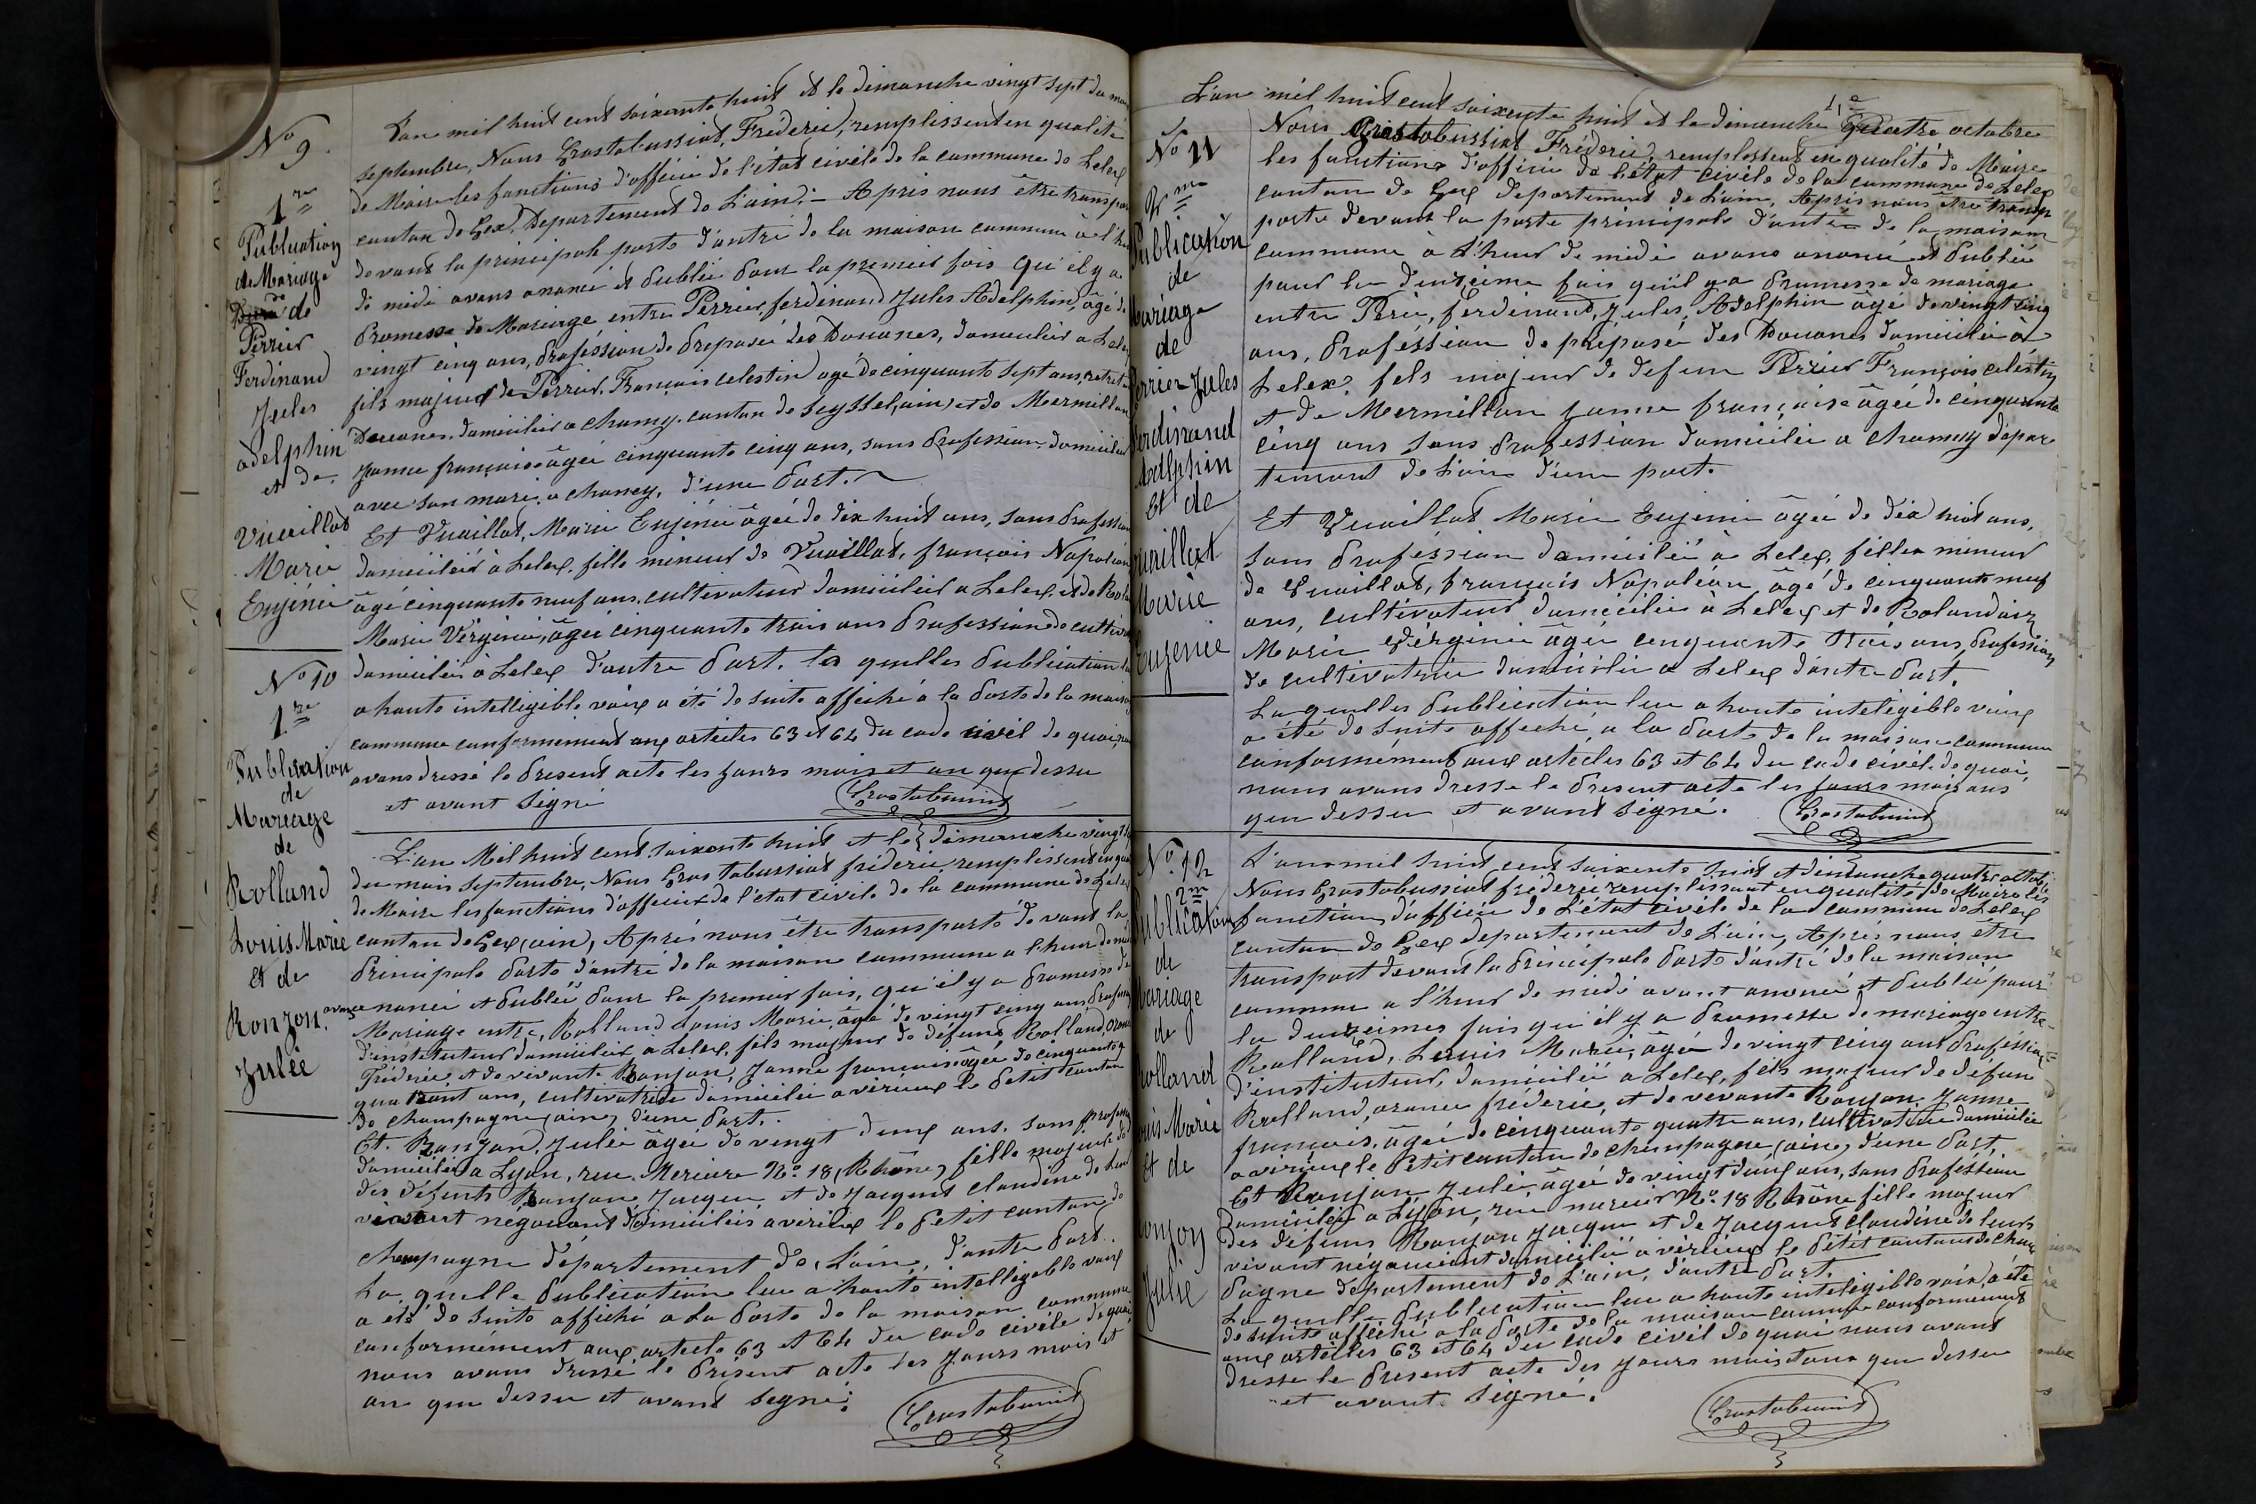 No 9
1re
Publication
de Mariage
de
Perrier
Ferdinand
Jules
adelphin
et de
Vuaillat
Marie
Eujénie
L'an mil huit cent soixante huit et le dimanche vingt sept du mois
septembre, Nous Grostabussiat, Fréderic, remplissent en qualité
de Maire les fonctions d'officier de l'état civile de la commune de Lelex
canton de Gex, Departement de L'ain. – Apris nous être transpor
devant la principale porte d'antré de la maison commune à l'h
de midi avons anancé et Publié Pour la premier fois qu'il y a
Promesse de Mariage entre Perrier, ferdinand Jules Adelphin, âgé de
vingt cinq ans, Profession de Préposé des Douanes, domicilié a Lelex
fils majeur de Perrier François celestin agé de cinquante sept ans, retreté
Douanes, domicilié a chaney canton de Seyssel, (ain) et de Mermillon
Janne françoise âgée cinquante cinq ans, sans Profession domiciliée
avec son mari a chaney, d'une Part.
Et Vuaillat, Marie Eujénie âgée de dix huit ans, sans Profession
domiciliée à Lelex, fille mineur de Vuaillat, françois Napoléon
âgé cinquante neuf ans, cultivateur domicilié a Lelex et de Rola
Marie Virginie, âgée cinquante trois ans Profession de cultiva
domiciliée a Lelex d'autre Part. la quelles Publication lu
a haute intelligible voix a été de suite affiché a la Porte de la maison
commune conformément aux articles 63 et 64 du code civil de quoi, n
avons dressé le Present acte les jours mois et an que dessu
et avant signé
Grostabussiat
No 10
1re
Publication
de
Mariage
de
Rolland
Louis Marie
et de
Ronzon
Julée
L'an Mil huit cent soixante huit et le dimanche vingt s
du mois septembre, Nous Grostabussiat fréderic, remplissent en qua
de Maire les fonctions d'officier de l'état civile de la commune de Lelex
canton de Gex (ain), Apris nous être transporté devant la
Principale Porte d'antré de la maison commune a l'heur de mi
avons ananée et Publié Pour la premier fois, qu'il y a Promesse de
Mariage entre, Rolland Louis Marie, âgé de vingt cinq ans Profession
d'instituteur domicilié a Lelex, fils majeur de défunt Rolland,
Fréderic, et de vivante Ronjon, Janne françoise âgée de cinquante
quatrant ans, cultivatrice domiciliée a virieux le Petit canton
de champagne (ain) d'une Part.
Et Ronzon, Julie âgée de vingt deux ans, sans Profession
domiciliée a Lyon, rue Meriere No 18 (Rhône) fille majeure de
des défunts Ronjon Jacque et de Jacquet Claudine de leur
vivant négociant domiciliés a virieux le Petit canton de
champagne département de L'ain, d'autre Part.
La quelle Publication lue a haute intelligible voix
a été de suite affiché a La Porte de la maison commune
conformément aux article 63 et 64 du code civile de quoi
nous avons dressé le Présent acte les jours mois et
an que dessu et avant signé.
Grostabussiat
No 11
2me
Publication
de
Mariage
de
Perrier Jules
Ferdinand
Adelphin
Et de
Vuaillat
Marie
Eugenie
L'an mil huit cent soixente huit et le dimenche quatre octobre
Nous Grostabussiat Fréderic, remplissent en qualité de Maire
les fonctions d'officier de l'état civile de la commune de Lelex
canton de Gex departement de L'ain, Apris nous être trans
porté devant la porte principale d'antré de la maison
commune à L'heur de midi avons ananc et Publié
pour la deuxieme fois qu'il y a Promesse de mariage
entre Perié, ferdinand, Jules, Adelphin âgé de vingt cinq
ans, Proféssion de préposé des Douanes domicilié à
Lelex, fils majeur de defun Perrier François céléstin
et de Mermillon Janne françoise âgée de cinquante
cinq ans sans Profession domicilié a chaney dépar
tement de L'ain d'une part.
Et Vuaillat Marie Eujenie âgée de dix huit ans,
sans Proféssion domicilié à Lelex, filles mineur
de Vuaillat, françois Napoléon âgé de cinquante neuf
ans, cultivateur domicilié à Lelex et de Rolandaiz
Marie Vérginie âgée cinquente trois ans, Profession
de cultivatrice domicilié a Lelex d'autre Part.
La quelles Publication lue a haute inteligible voix
a été de suite affiché, a la Porte de la maison commune
conformément aux articles 63 et 64 du code civile de quoi,
nous avons dressé le Present acte les jours mois ans
que dessu et avant signé.
Grostabussiat
No 12
2me
Publication
de
Mariage
de
Rolland
Louis Marie
et de
Ronzon
Julie
L'an mil huit cent soixente huit et dimanche quatre octobre
Nous Grostabussiat fréderic remplissant en qualité de Maire les
fonctions d'officier de L'état civile de la commune de Lelex
canton de Gex departement de L'ain, Apris nous être
transport devant la Principale Porte d'antré de la maison
commun a l'heur de midi avant ananc et Publié pour
la deuxeimes fois qu'il y a Promesse de mariage entre
Rolland, Louis Marie, âgé de vingt cinq ans Proféssion
d'instituteur, domicilié a Lelex, fils majeur de defun
Rolland, fréderic, et de vevante Ronjon Janne
françois, âgée de cinquante quatre ans, cultivatrice domicilié
a virieux le Petit canton de champagne (ain) d'une Part.
Et Ronjon Julie, âgée de vingt deux ans, sans Proféssion
domicilié a Lyon, rue No 18 Rhône fille majeur
des défuns Ronjon Jacque et de Jacquet claudine de leurs
vivant négociant domicilié a virieux le Pétit canton de cham
pagne departement de L'ain, d'autre Part.
La quelle Publication lue a haute inteligible voix, a été
de suite affiché a la Porte de la maison commune conformement
aux articlles 63 et 64 du code civil de quoi nous avons
dresse le Present acte des jours mois tans que dessu
et avant signé.
Grostabussiat